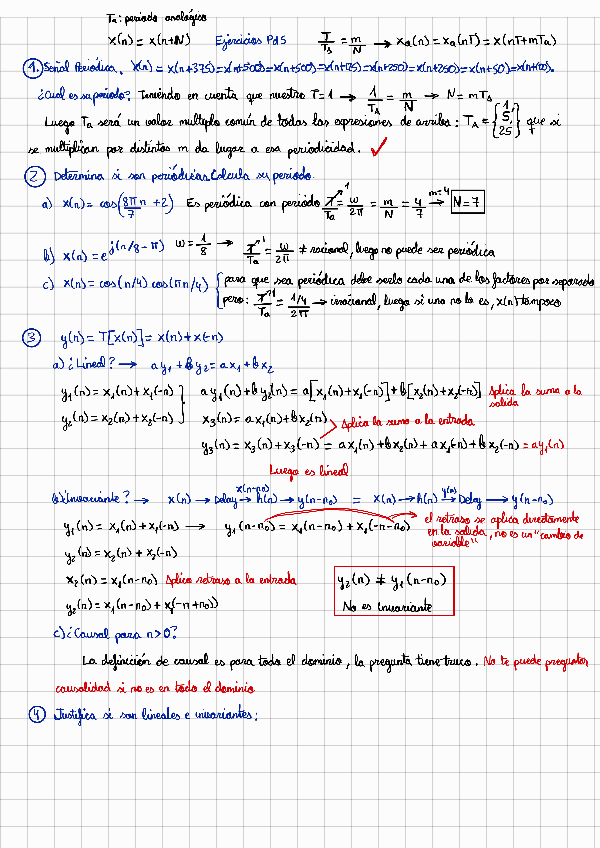 Ta: periodo analógico
x(n) = x(n+N) Ejercicios PdS T/Ts = m/N → xa(n) = xa(nT) = x(nT+mTa)
1. Señal Periódica. x(n) = x(n+375) = x(n+500) = x(n+500) = x(n+175) = x(n+250) = x(n+250) = x(n+50) = x(n+100).
¿Cual es su periodo? Teniendo en cuenta que nuestro T=1 → 1/Ts = m/N → N = mTs
Luego Ta será un valor multiplo común de todas las expresiones de arriba: TA = {1, 5, 25} que si
se multiplican por distintos m da lugar a esa periodicidad. ✓
2 Determina si son periódicas. Calcula su periodo.
a) x(n) = cos(8πn/7 + 2) Es periódica con periodo T/Ta = ω/2π = m/N = 4/7 m=4 → N=7
b) x(n) = e^j(n/8-π) ω = 1/8 → T/Ta = ω/2π ≠ racional, luego no puede ser periódica
c) x(n) = cos(n/4) cos(πn/4) { para que sea periódica debe serlo cada una de los factores por separado
pero: T/Ta = 1/4/2π → irracional, luego si uno no lo es, x(n) tampoco
3 y(n) = T[x(n)] = x(n) + x(-n)
a) ¿Lineal? → ay1 + by2 = ax1 + bx2
y1(n) = x1(n) + x1(-n) } ay1(n) + by2(n) = a[x1(n) + x1(-n)] + b[x2(n) + x2(-n)] Aplica la suma a la salida
y2(n) = x2(n) + x2(-n) x3(n) = ax1(n) + bx2(n) Aplica la suma a la entrada
y3(n) = x3(n) + x3(-n) = ax1(n) + bx2(n) + ax1(-n) + bx2(-n) = ay1(n)
Luego es lineal
b) ¿Invariante? → x(n) → Delay x(n-n0) → h(n) → y(n-n0) = x(n) → h(n) y(n) → Delay → y(n-n0)
y1(n) = x1(n) + x1(-n) → y1(n-n0) = x1(n-n0) + x1(-n-n0) el retraso se aplica directamente
en la salida, no es un "cambio de
variable"
y2(n) = x2(n) + x2(-n)
x2(n) = x1(n-n0) Aplica retraso a la entrada
y2(n) = x1(n-n0) + x1(-n+n0)) y2(n) ≠ y1(n-n0)
No es invariante
c) ¿Causal para n>0?
La definición de causal es para todo el dominio, la pregunta tiene truco. No te puede preguntar
causalidad si no es en todo el dominio
4 Justifica si son lineales e invariantes: